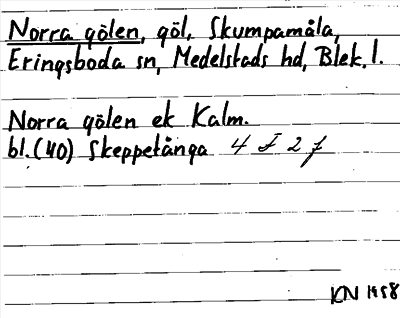 Norra gölen, göl, Skumpamåla,
Eringsboda sn, Medelstads hd, Blek. l.
Norra gölen ek Kalm.
bl. (40) Skeppetånga 4 I 2 f
KN 1958